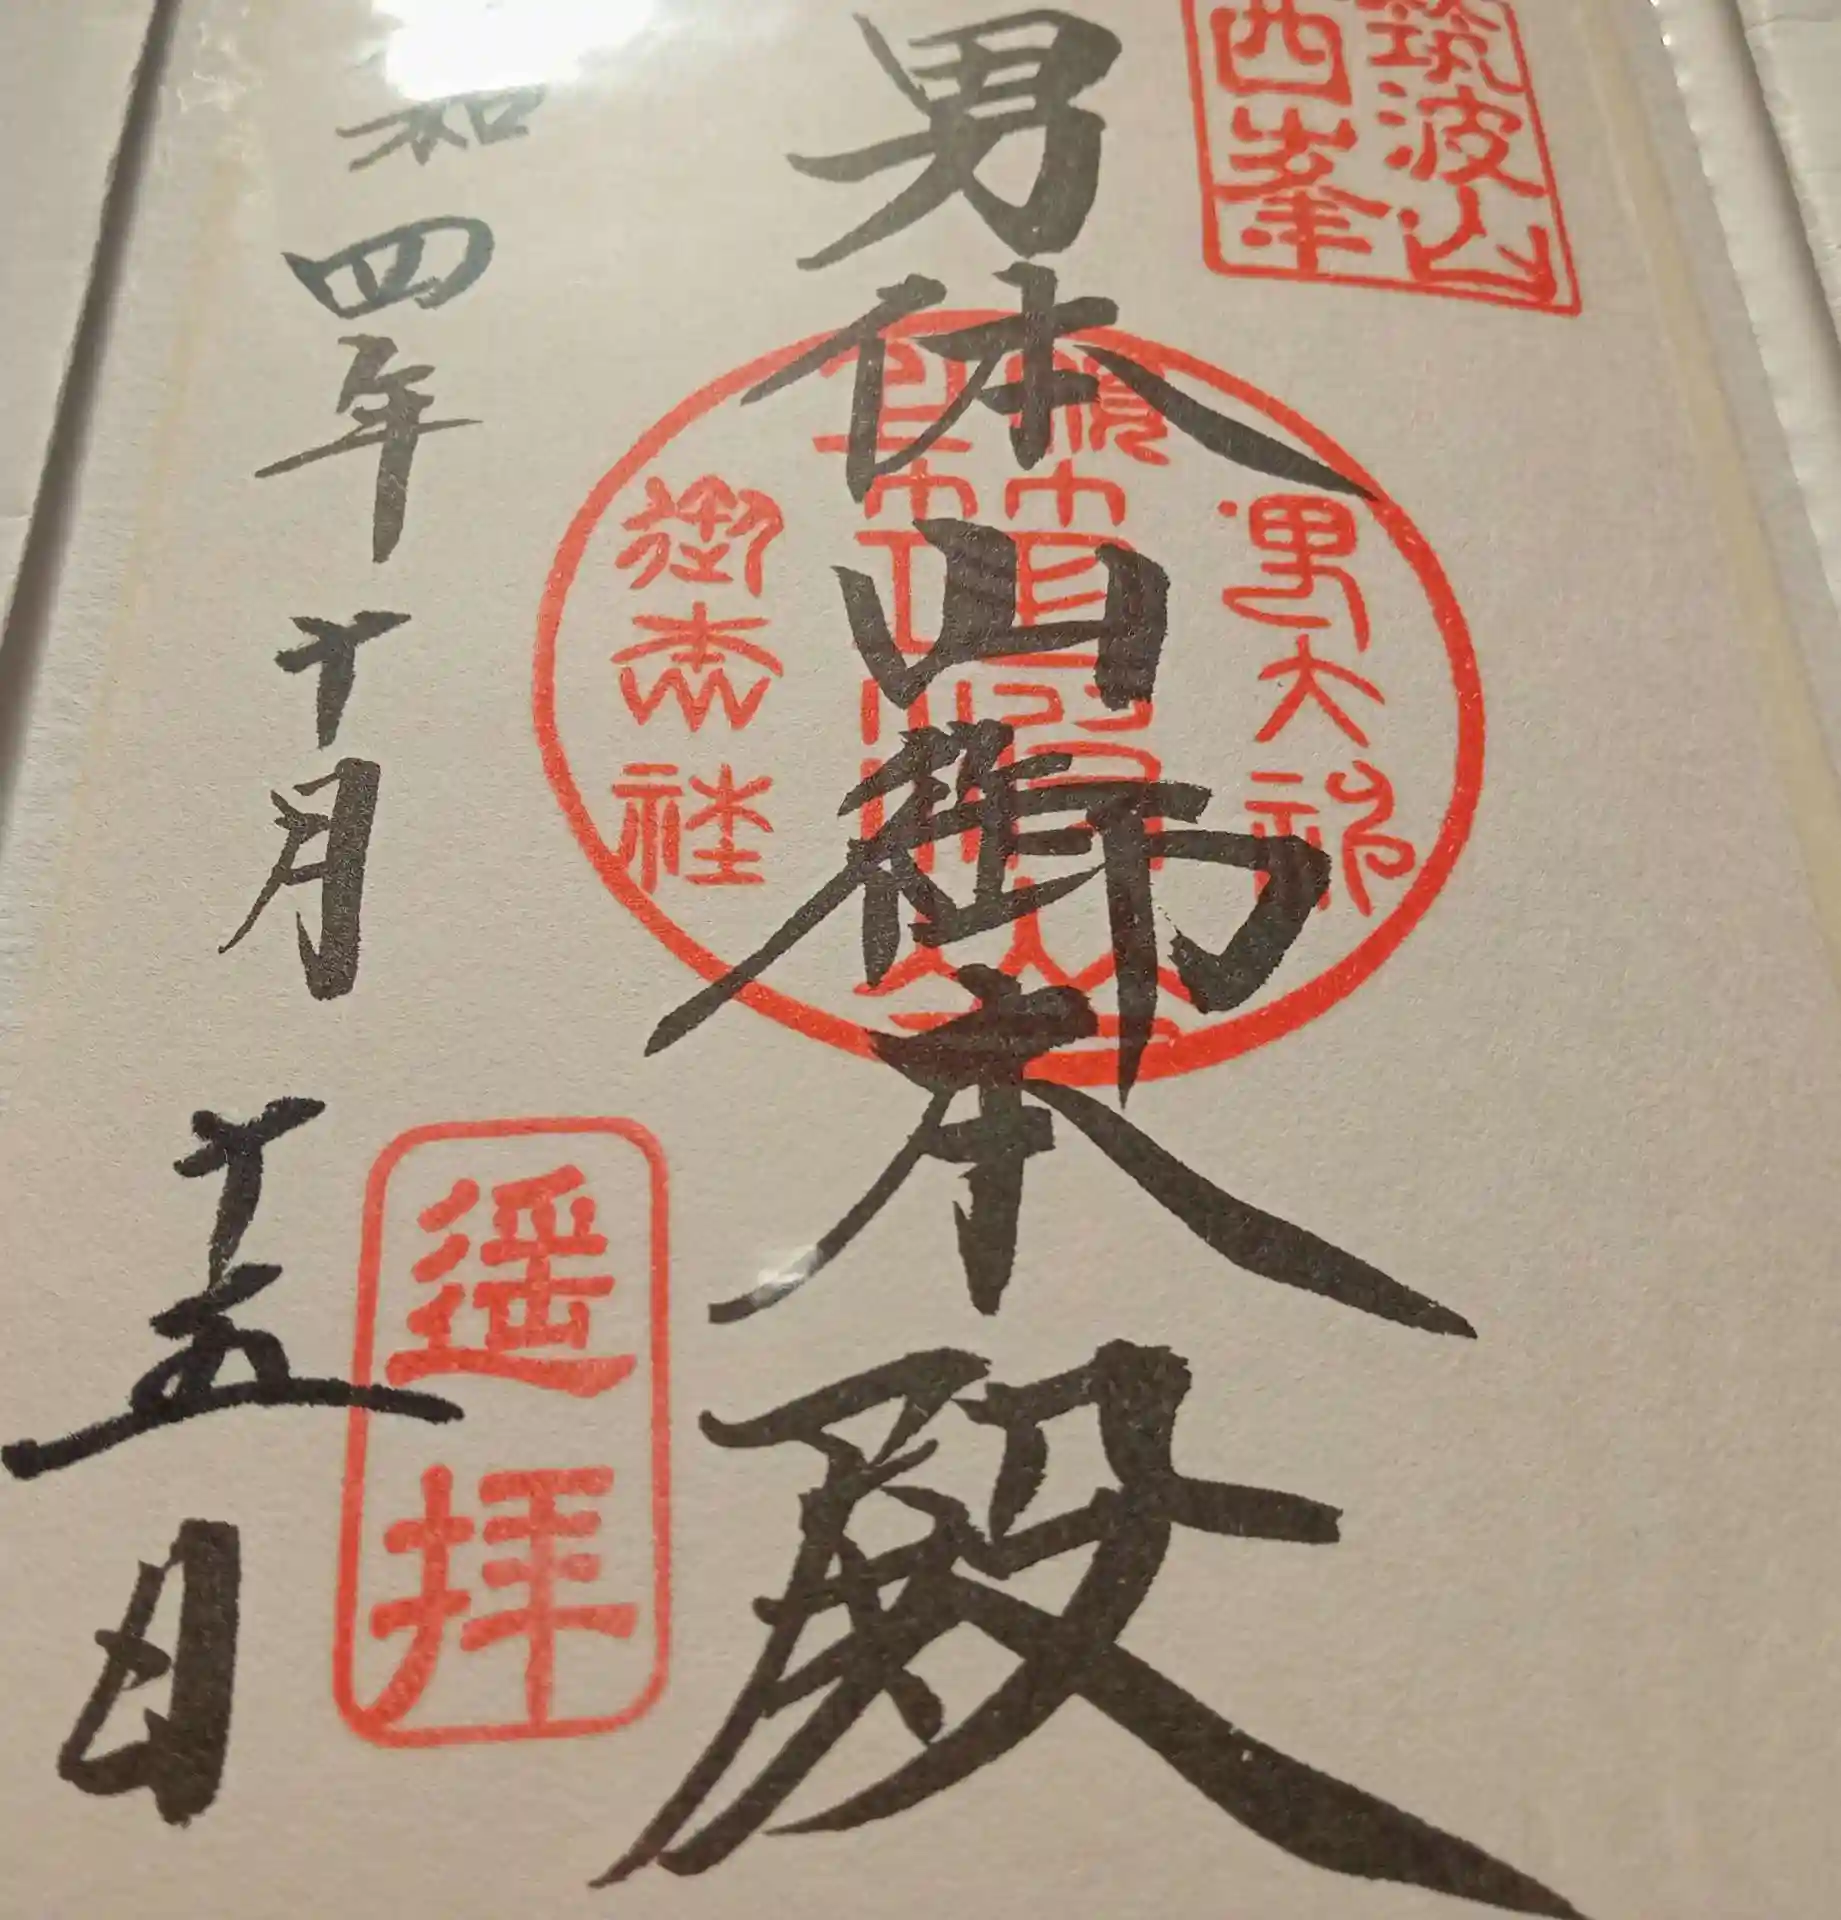 筑波山
西峯
男体山御本殿
男大神
御本社
遥拝
和四年十月十五日